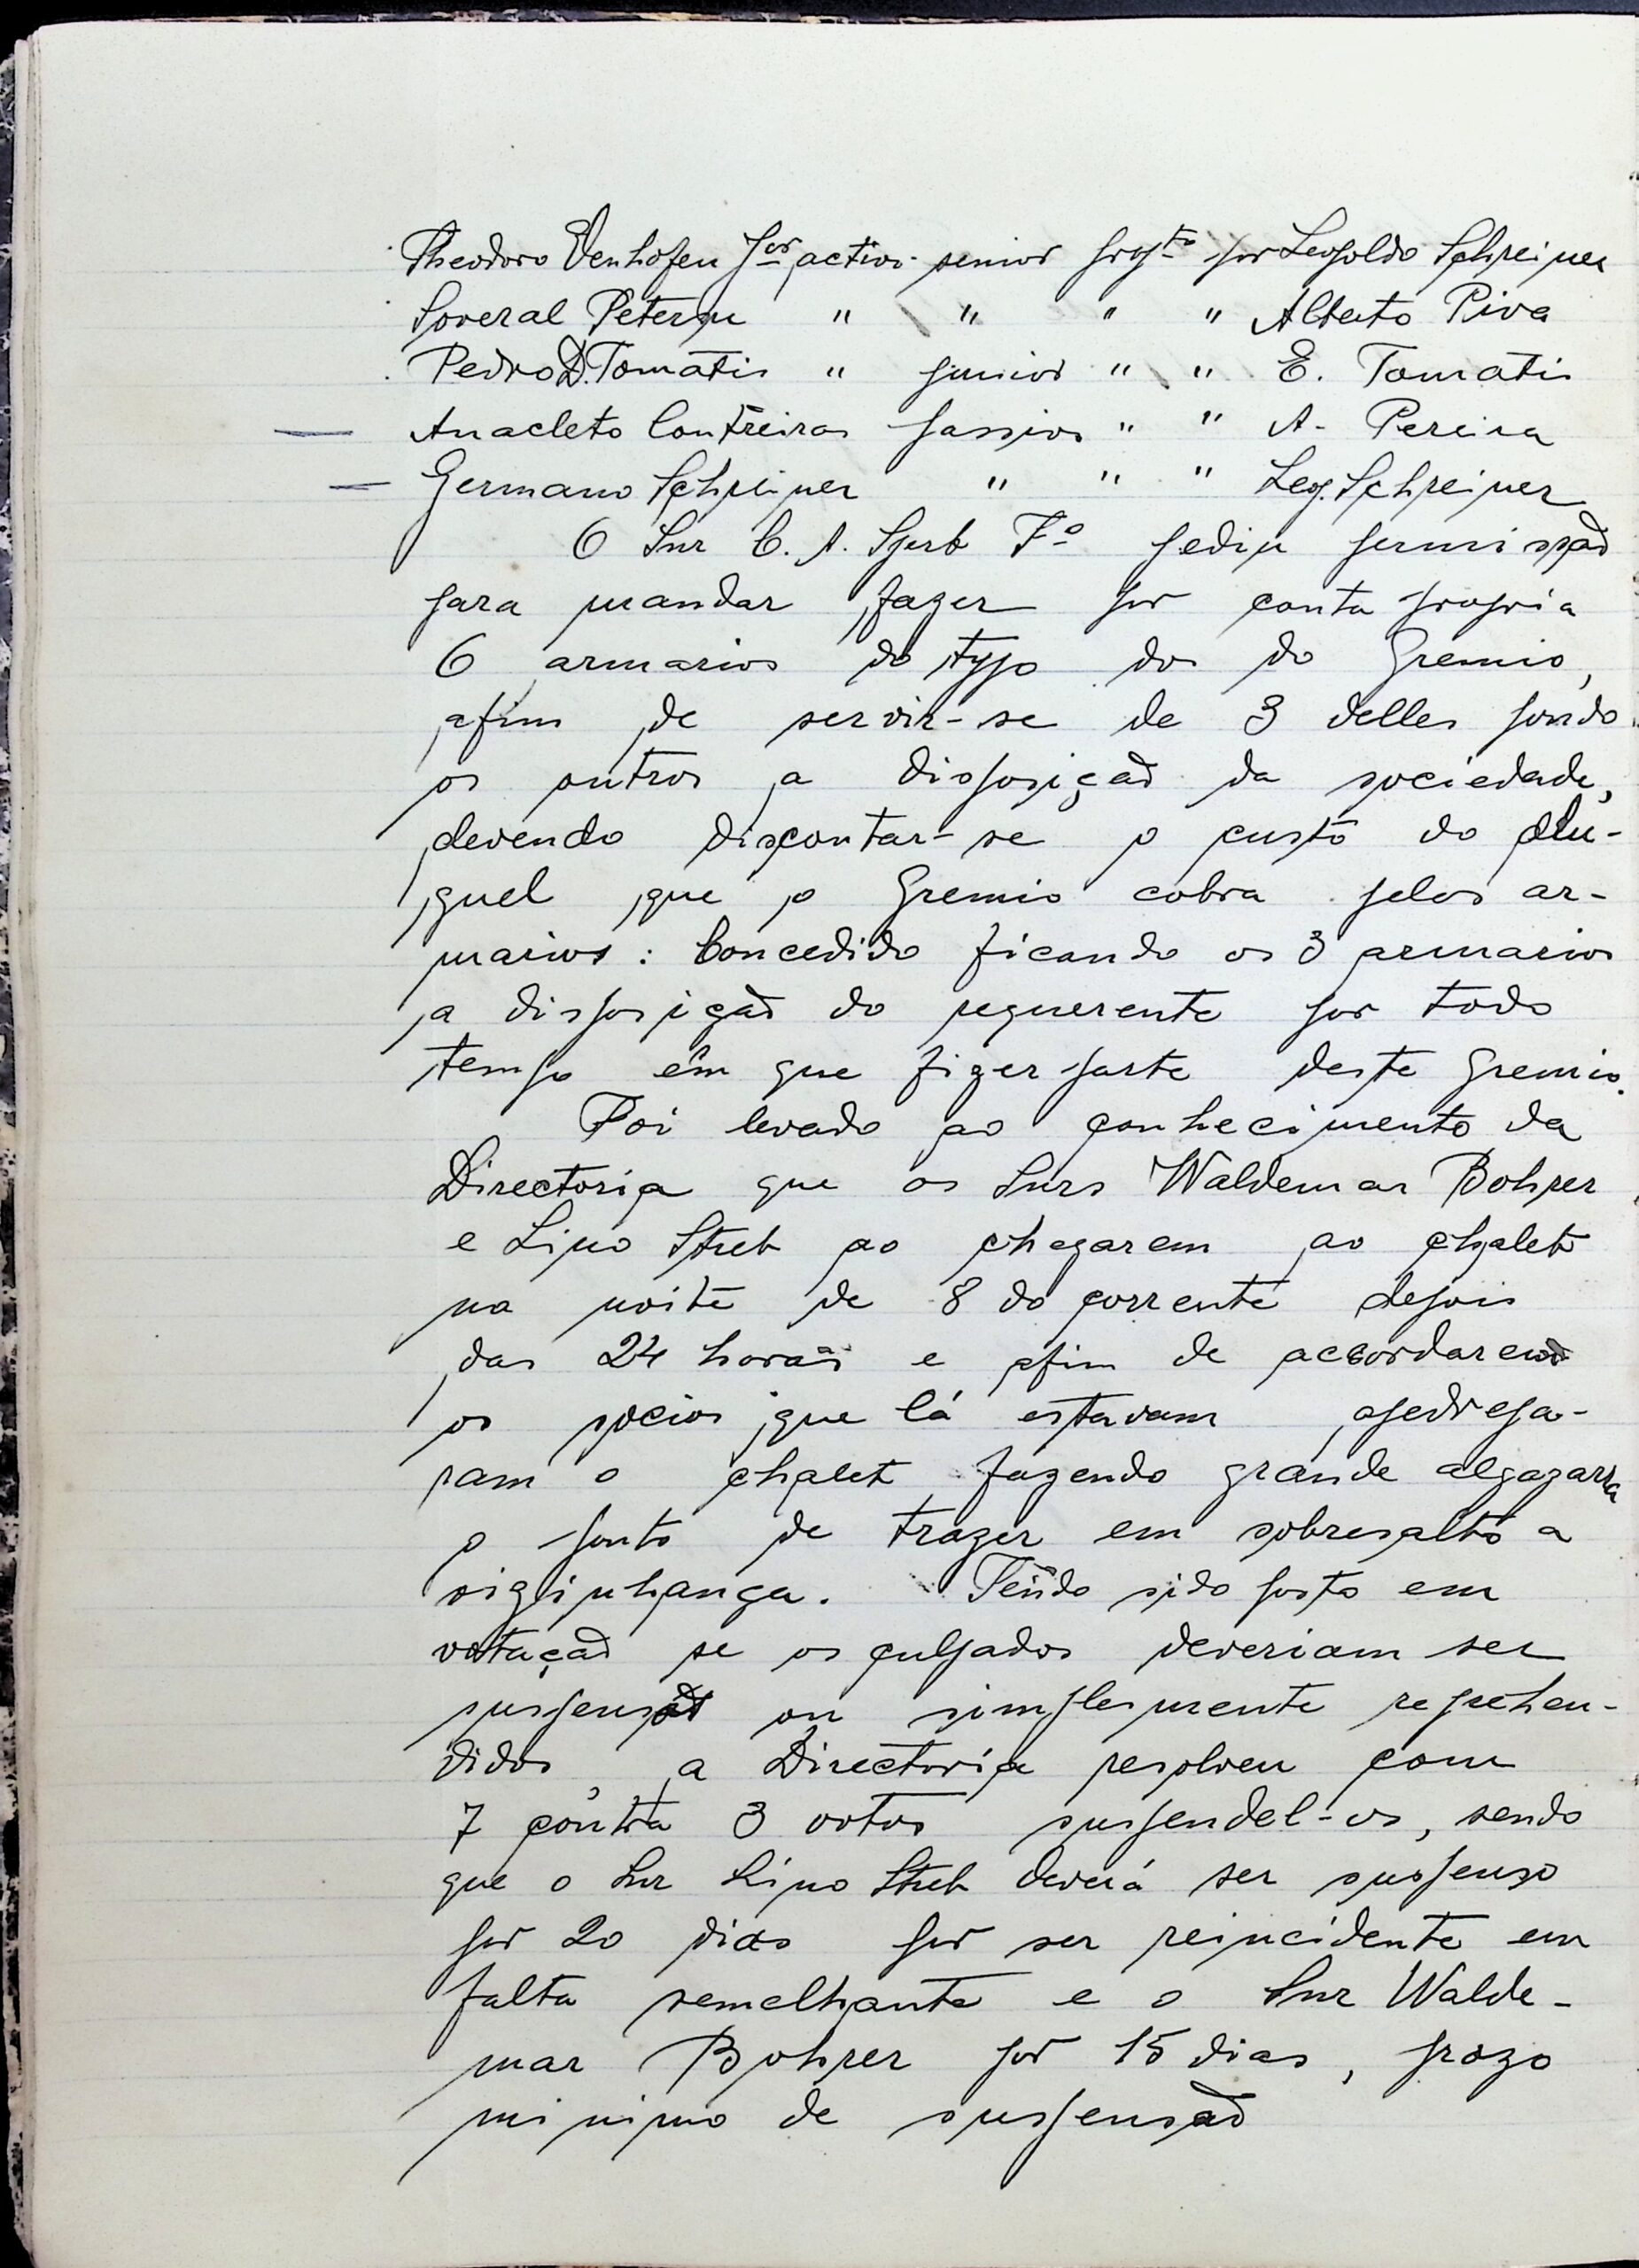 Theodoro Venhofen p^or activo senior prop^to por Leopoldo Schreiner
Soveral Petersen " " " " Alberto Piva
Pedro D. Tomatis " junior " " E. Tomatis
Anacleto Contreiras passivo " " A. Pereira
Germano Schreiner " " " Leop. Schreiner
O Snr C. A. Sperb Fº pediu permissão
para mandar fazer por conta propria
6 armarios do typo dos do Gremio,
afim de servir-se de 3 delles pondo
os outros a disposição da sociedade,
devendo discontar-se o custo do alu-
guel que o Gremio cobra pelos ar-
marios: Concedido ficando os 3 armarios
a disposição do requerente por todo
tempo em que fizer parte deste Gremio.
Foi levado ao conhecimento da
Directoria que os Snrs Waldemar Bohrer
e Lino Streb ao chegarem ao chalet
na noite de 8 do corrente depois
das 24 horas e afim de accordarem
os socios que lá estavam apedreja-
ram o chalet fazendo grande algazarra
a ponto de trazer em sobresalto a
visinhança. Tendo sido posto em
votação se os culpados deveriam ser
suspensos ou simplesmente reprehen-
didos, a Directoria resolveu com
7 contra 3 votos suspendel-os, sendo
que o Snr Lino Streb deverá ser suspenso
por 20 dias por ser reincidente em
falta semelhante e o Snr Walde-
mar Bohrer por 15 dias, prazo
minimo de suspensão